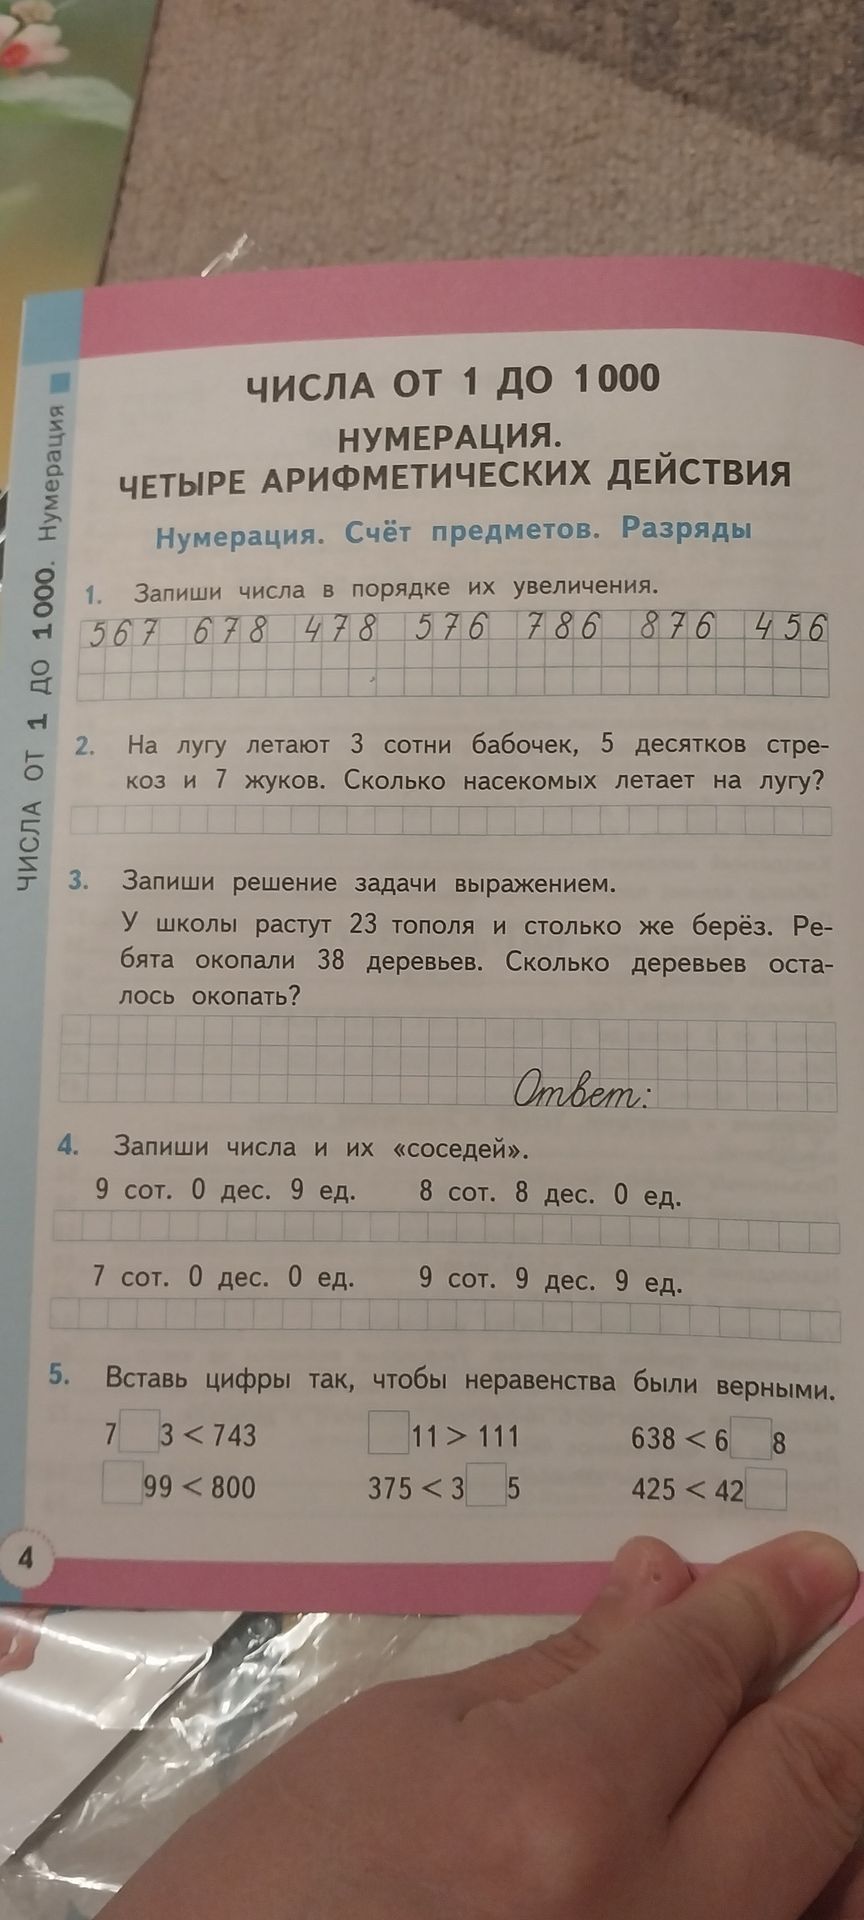 ЧИСЛА ОТ 1 ДО 1000. Нумерация
ЧИСЛА ОТ 1 ДО 1000
НУМЕРАЦИЯ.
ЧЕТЫРЕ АРИФМЕТИЧЕСКИХ ДЕЙСТВИЯ
Нумерация. Счёт предметов. Разряды
1. Запиши числа в порядке их увеличения.
567 678 478 576 786 876 456
2. На лугу летают 3 сотни бабочек, 5 десятков стре-
коз и 7 жуков. Сколько насекомых летает на лугу?
3. Запиши решение задачи выражением.
У школы растут 23 тополя и столько же берёз. Ре-
бята окопали 38 деревьев. Сколько деревьев оста-
лось окопать?
Ответ:
4. Запиши числа и их «соседей».
9 сот. 0 дес. 9 ед. 8 сот. 8 дес. 0 ед.
7 сот. 0 дес. 0 ед. 9 сот. 9 дес. 9 ед.
5. Вставь цифры так, чтобы неравенства были верными.
7□3 < 743 □11 > 111 638 < 6□8
□99 < 800 375 < 3□5 425 < 42□
4